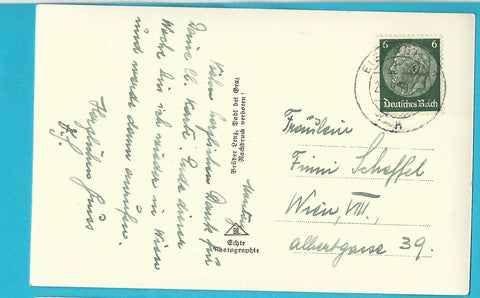 Montag
Vielen herzlichen Dank für
Deine lb. Karte. Ende dieser
Woche bin ich wieder in Wien
und werde dann anrufen.
Herzlichen Gruss
Brüder Lenz, Dobl bei Graz
Nachdruck verboten!
Echte
Photographie
6 6
Deutsches Reich
Fräulein
Finni Scheffel
Wien, VIII.,
Albertgasse 39.